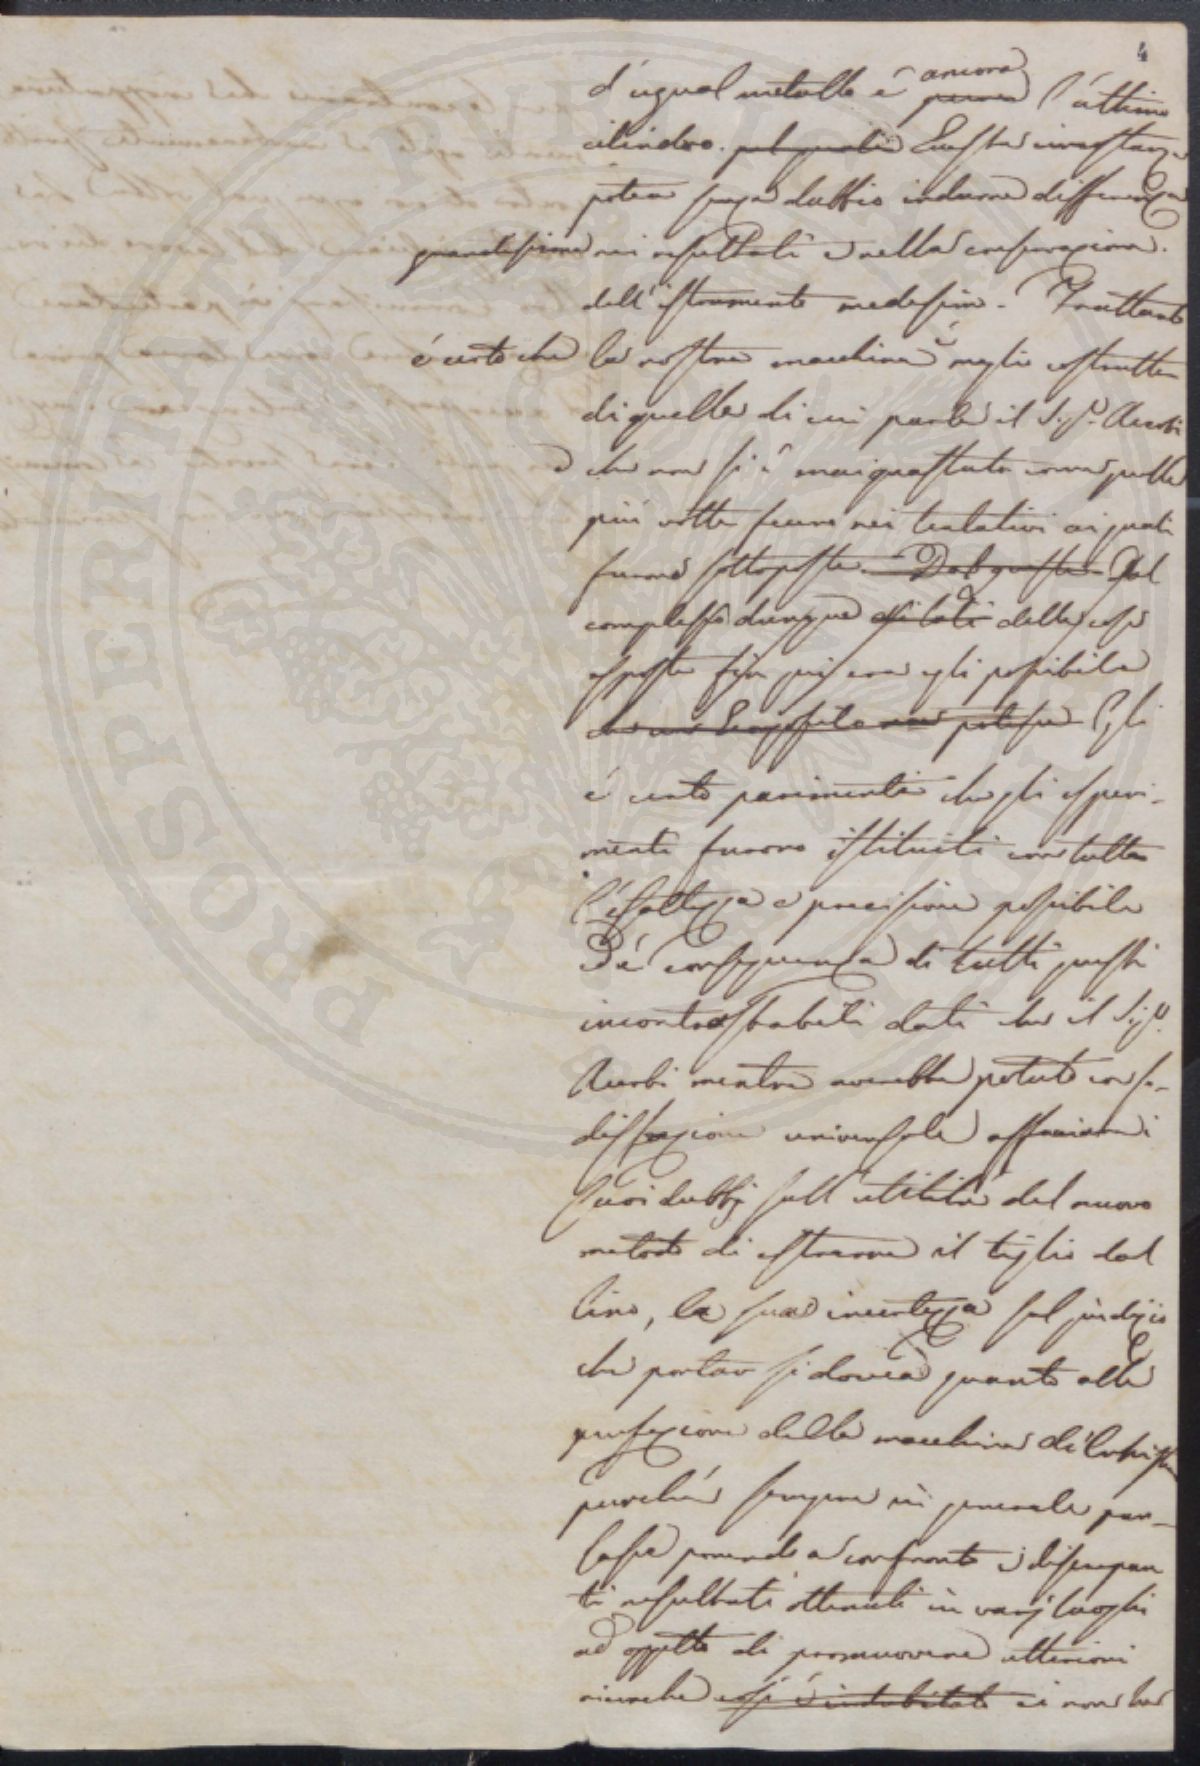 4
d'ugual metallo è ancora l'ultimo
cilindro. pel quale Questa circostanza
potea senza dubbio indurre differenza
grandissima nei resultati e nella conservazione
dell'istrumento medesimo. Frattanto
è certo che la nostra macchina è meglio costrutta
di quella di cui parla il Sig.r Acerbi
e che non si è mai guastata come quelle
più volte fecero nei tentativi ai quali
furono sottoposte. Dal queste Dal
complesso dunque di tali delle cose
esposte fin qui era egli possibile
che un potesse Egli
è certo parimenti che gli esperi-
menti furono istituiti con tutta
l'esattezza e precisione possibile
Ed è conseguenza di tutti questi
incontrastabili dati che il Sig.r
Acerbi mentre avrebbe potuto con so-
disfazione universale affacciare i
suoi dubbj sull'utilità del nuovo
metodo di estrarre il tiglio dal
lino, la sua incertezza sul giudizio
che portar si dovea quanto alla
perfezione della macchina di Christian
perchè sempre in generale par-
lasse ponendo a confronto i discrepan
ti resultati ottenuti in varj luoghi
ad oggetto di promuovere ulteriori
ricerche così è indubitato ei non ha
PROSPERITATI PUBLICAE